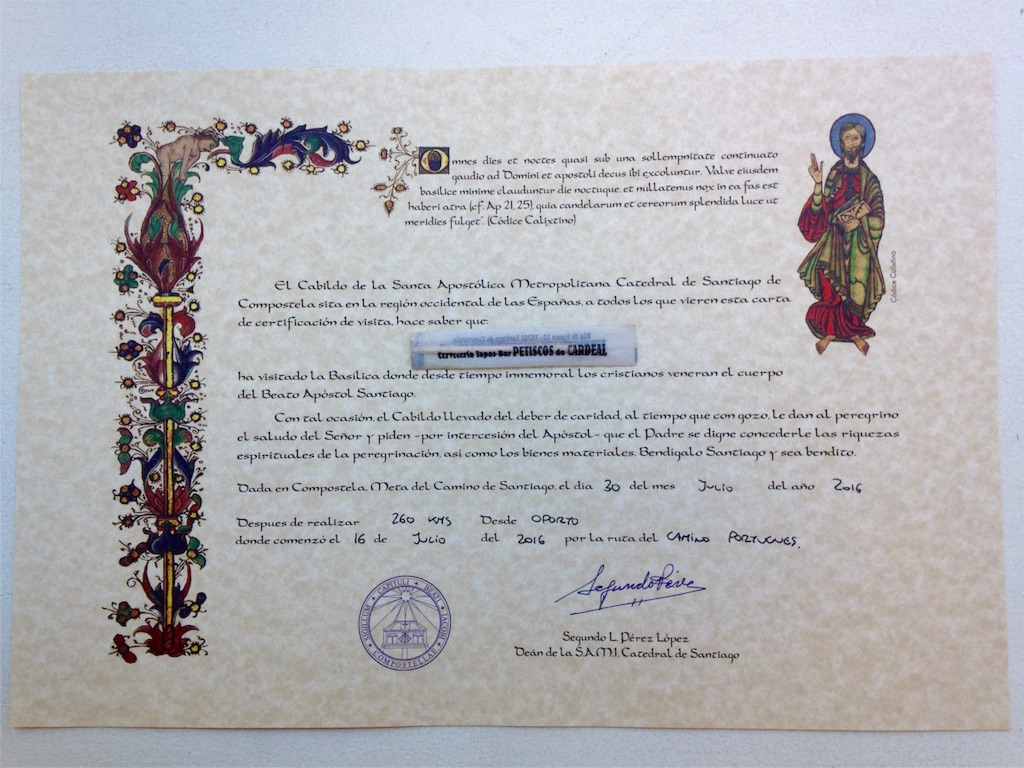 Omnes dies et noctes quasi sub una sollempnitate continuato
gaudio ad Domini et apostoli decus ibi excoluntur. Valve eiusdem
basilice minime clauduntur die noctuque, et nullatenus nox in ea fas est
haberi atra (cf. Ap 21, 25), quia candelarum et cereorum splendida luce ut
meridies fulget". (Códice Calixtino)
Códice Calixtino
El Cabildo de la Santa Apostólica Metropolitana Catedral de Santiago de
Compostela sita en la región occidental de las Españas, a todos los que vieren esta carta
de certificación de visita, hace saber que:
Cervecería Tapas-Bar PETISCOS do CARDEAL
ha visitado la Basílica donde desde tiempo inmemorial los cristianos veneran el cuerpo
del Beato Apóstol Santiago.
Con tal ocasión, el Cabildo llevado del deber de caridad, al tiempo que con gozo, le dan al peregrino
el saludo del Señor y piden -por intercesión del Apóstol- que el Padre se digne concederle las riquezas
espirituales de la peregrinación, así como los bienes materiales. Bendígalo Santiago y sea bendito.
Dada en Compostela, Meta del Camino de Santiago, el día 30 del mes Julio del año 2016
Despues de realizar 260 KMS Desde OPORTO
donde comenzó el 16 de Julio del 2016 por la ruta del CAMINO PORTUGUES.
SIGILLUM CAPITULI BEATI JACOBI COMPOSTELLAE
Segundo Pérez
Segundo L. Pérez López
Deán de la S.A.M.I. Catedral de Santiago